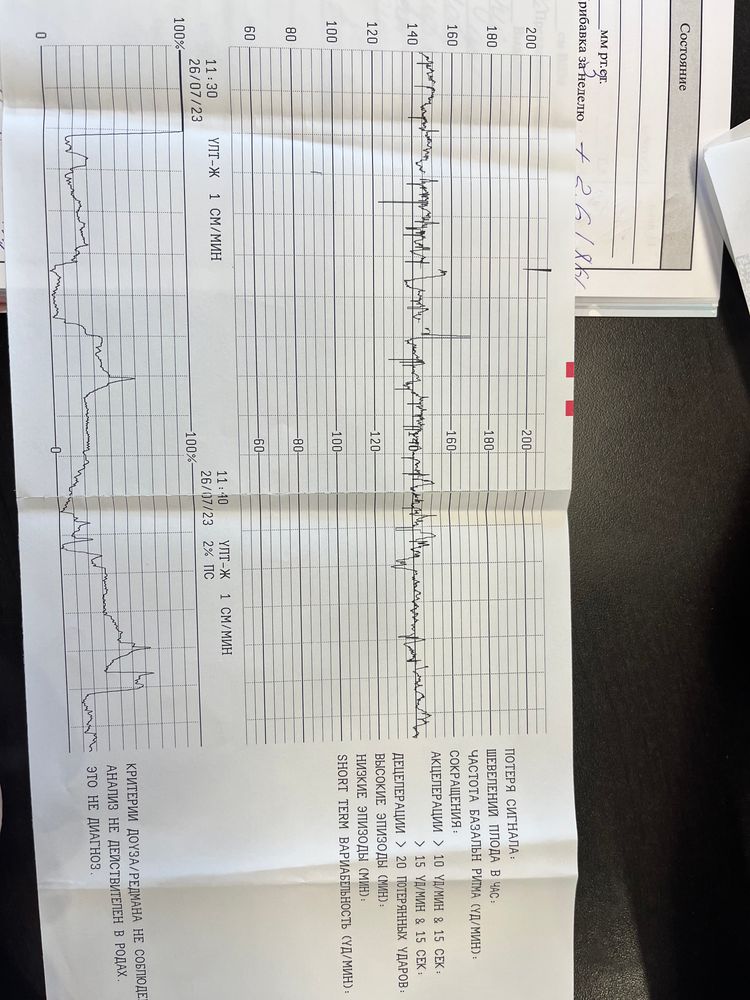 Состояние
мм рт.ст.
рибавка за неделю + 2.6
200
180
160
140
120
100
80
60
200
180
160
140
120
100
80
60
11:30 УЛТ-Ж 1 СМ/МИН
26/07/23
11:40 УЛТ-Ж 1 СМ/МИН
26/07/23 2% ПС
100%
0
100%
0
ПОТЕРЯ СИГНАЛА:
ШЕВЕЛЕНИЙ ПЛОДА В ЧАС:
ЧАСТОТА БАЗАЛЬН РИТМА (УД/МИН):
СОКРАЩЕНИЯ:
АКЦЕЛЕРАЦИИ > 10 УД/МИН & 15 СЕК:
> 15 УД/МИН & 15 СЕК:
ДЕЦЕЛЕРАЦИИ > 20 ПОТЕРЯННЫХ УДАРОВ:
ВЫСОКИЕ ЭПИЗОДЫ (МИН):
НИЗКИЕ ЭПИЗОДЫ (МИН):
SHORT TERM ВАРИАБЕЛЬНОСТЬ (УД/МИН):
КРИТЕРИИ ДОУЗА/РЕДМАНА НЕ СОБЛЮДЕ
АНАЛИЗ НЕ ДЕЙСТВИТЕЛЕН В РОДАХ.
ЭТО НЕ ДИАГНОЗ.